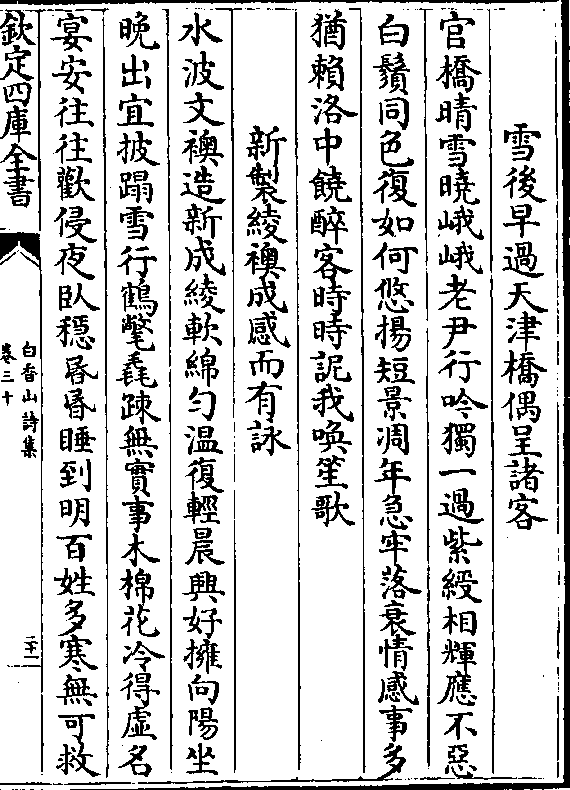 雪後早過天津橋偶呈諸客
官橋晴雪曉峨峨老尹行吟獨一過紫綬相輝應不惡
白鬚同色復如何悠揚短景凋年急牢落衰情感事多
猶賴洛中饒醉客時時䛏我喚笙歌
新製綾襖成感而有詠
水波文襖造新成綾軟綿匀温復輕晨興好擁向陽坐
晚出宜披蹋雪行鶴氅毳疎無實事木棉花冷得虚名
宴安往往歡侵夜臥穩昬昬睡到明百姓多寒無可救
欽定四庫全書
白香山詩集
卷三十
二十一